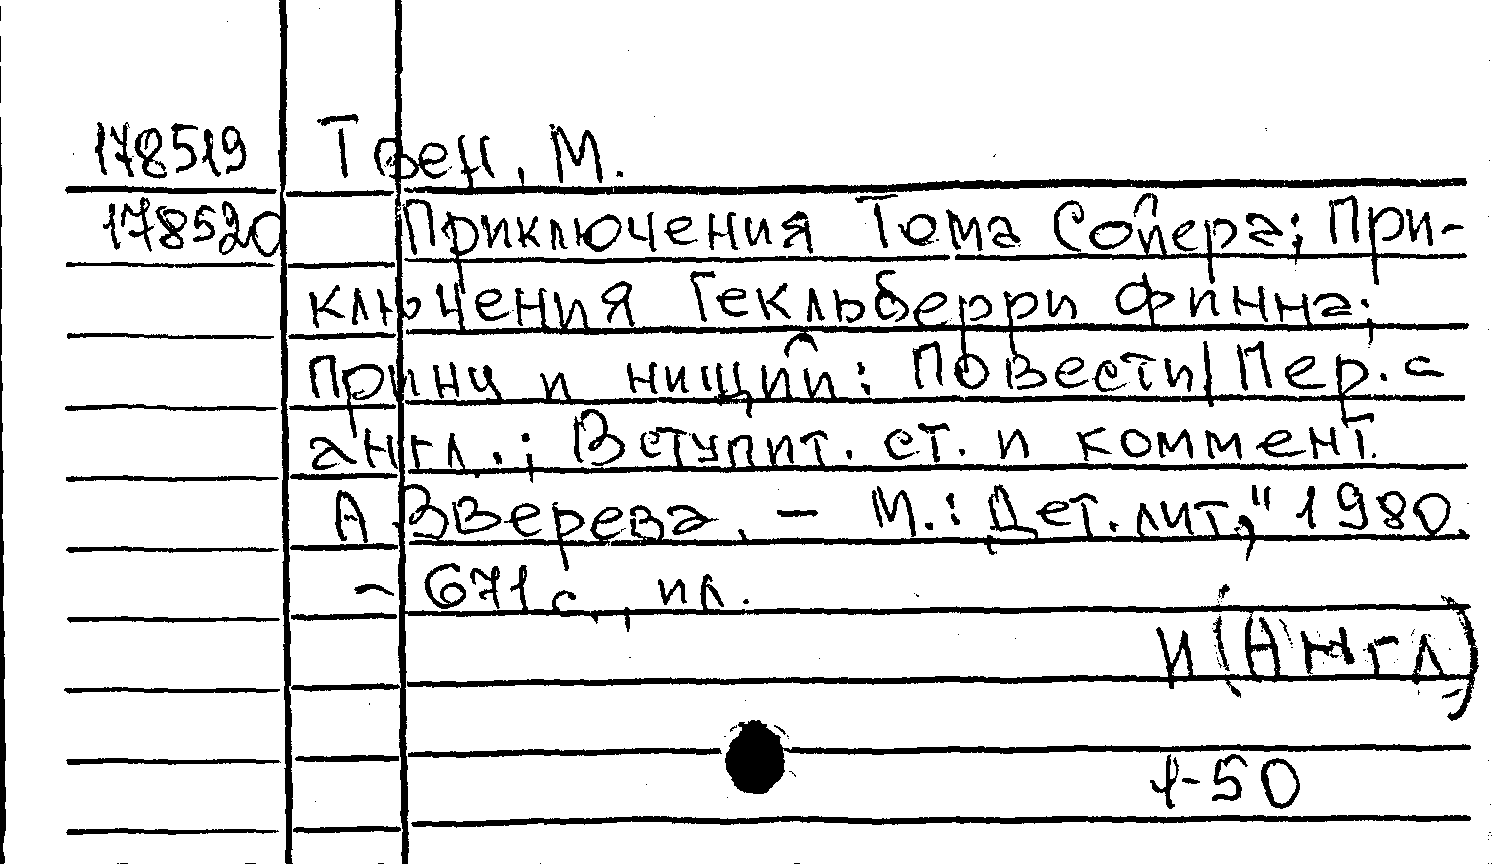 178519 Твен, М.
178520 Приключения Тома Сойера; При-
ключения Гекльберри Финна;
Принц и нищий: Повести/ Пер. с
англ.; Вступит. ст. и коммент.
А Зверева. - М.: Дет. лит.," 1980.
- 671 с., ил.
И(Англ)
1-50